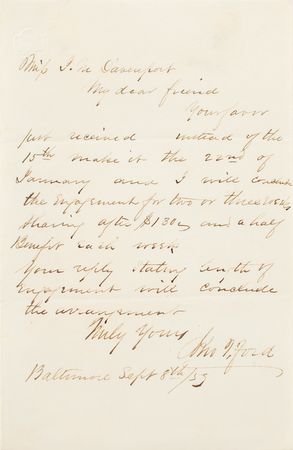 Miss J. M Davenport
My dear friend
Your favor
just received instead of the
15th make it the 22nd of
January and I will conclude
the Engagement for two or three weeks
sharing after $130 and a half
Benefit each week
Your reply stating length of
Engagement will conclude
the arrangement
Truly Yours
Jno T. Ford
Baltimore Sept 8th/59